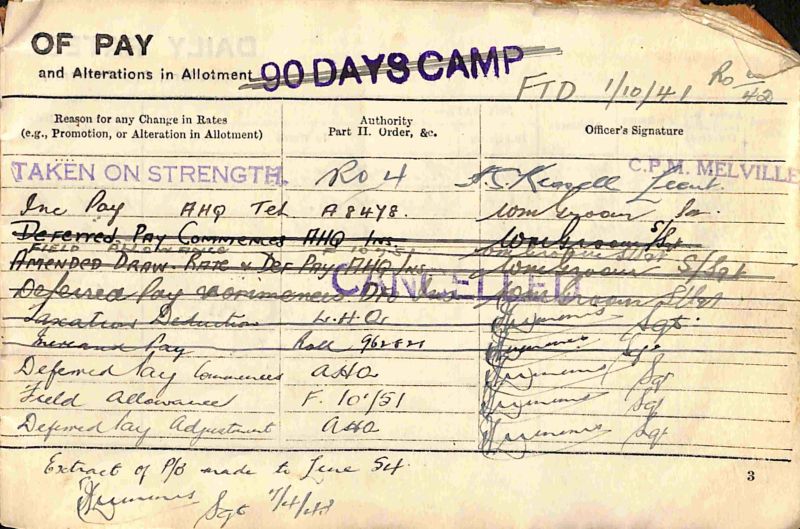 OF PAY
and Alterations in Allotment 90 DAYS CAMP
FTD 1/10/41 Ro 42
Reason for any Change in Rates
(e.g., Promotion, or Alteration in Allotment)
Authority
Part II. Order, &c.
Officer's Signature
TAKEN ON STRENGTH. RO 4 Lieut. C.P.M. MELVILLE
Inc Pay AHQ Tel A8478. Wm Groom
Deferred Pay Commences AHQ Ins. Wm Groom S/Sgt
FIELD ALLOWANCE F 10/51 S/Sgt
AMENDED DRAW. RATE & DEF PAY AHQ Ins Wm Groom S/Sgt
CANCELLED
Deferred Pay Wm Groom S/Sgt
Taxation Deduction L.H.Q. Sgt.
Increased Pay Roll 962821 Sgt
Deferred Pay Commences AHQ Sgt
Field Allowance F. 10/51 Sgt
Deferred Pay Adjustment AHQ Sgt
Extract of P/B made to Line 54.
Sgt 7/4/43
3